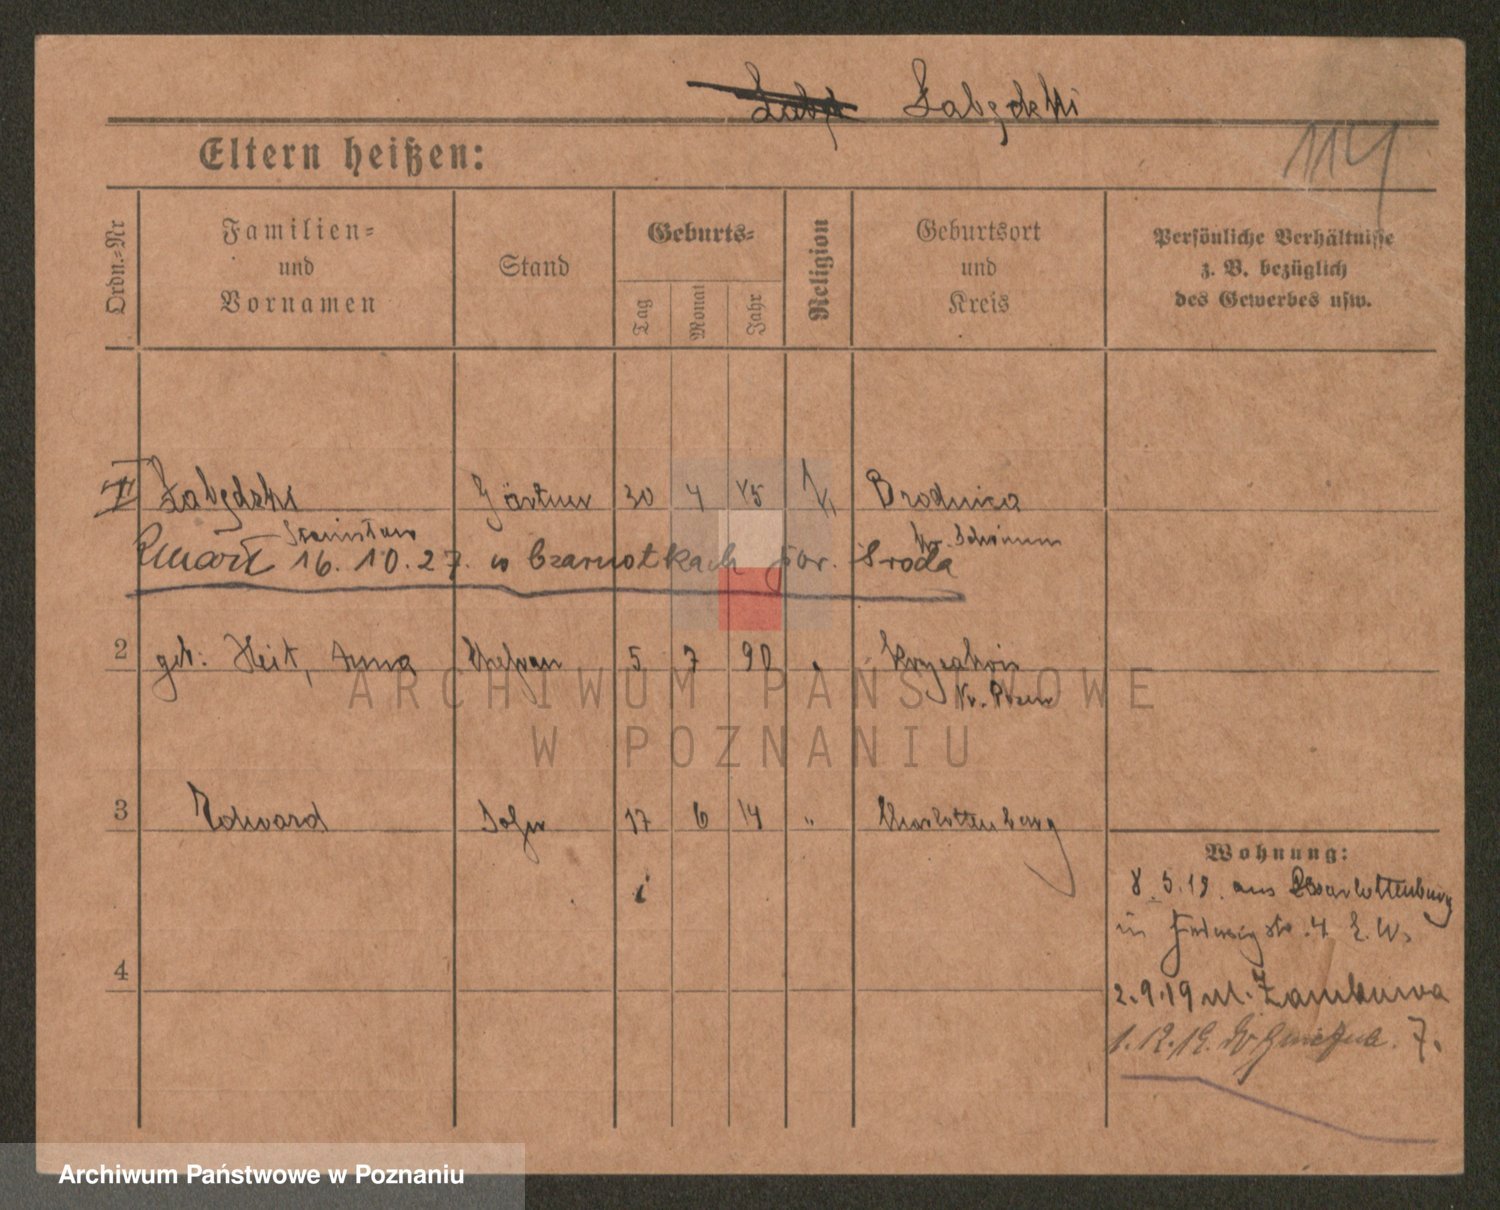 Łabędzki
114
Eltern heißen:
Ordn.-Nr Familien- und Vornamen Stand Geburts- Tag Monat Jahr Religion Geburtsort und Kreis Persönliche Verhältnisse z. B. bezüglich des Gewerbes usw.
Łabędzki Gärtner 30 4 Brodnica
Stanisław Kr. Schrimm
Zmarł 16.10.27. w Czarnotkach pow. Środa
2 geb: Heit, Anna Ehefrau 5 7 90 "
Kr. Posen
3 Edward Sohn 17 6 14 " Charlottenburg
Wohnung:
8.5.19. aus Charlottenburg
in 4
4
2.9.19 ul. Zamkowa
7.
ARCHIWUM PAŃSTWOWE
W POZNANIU
Archiwum Państwowe w Poznaniu